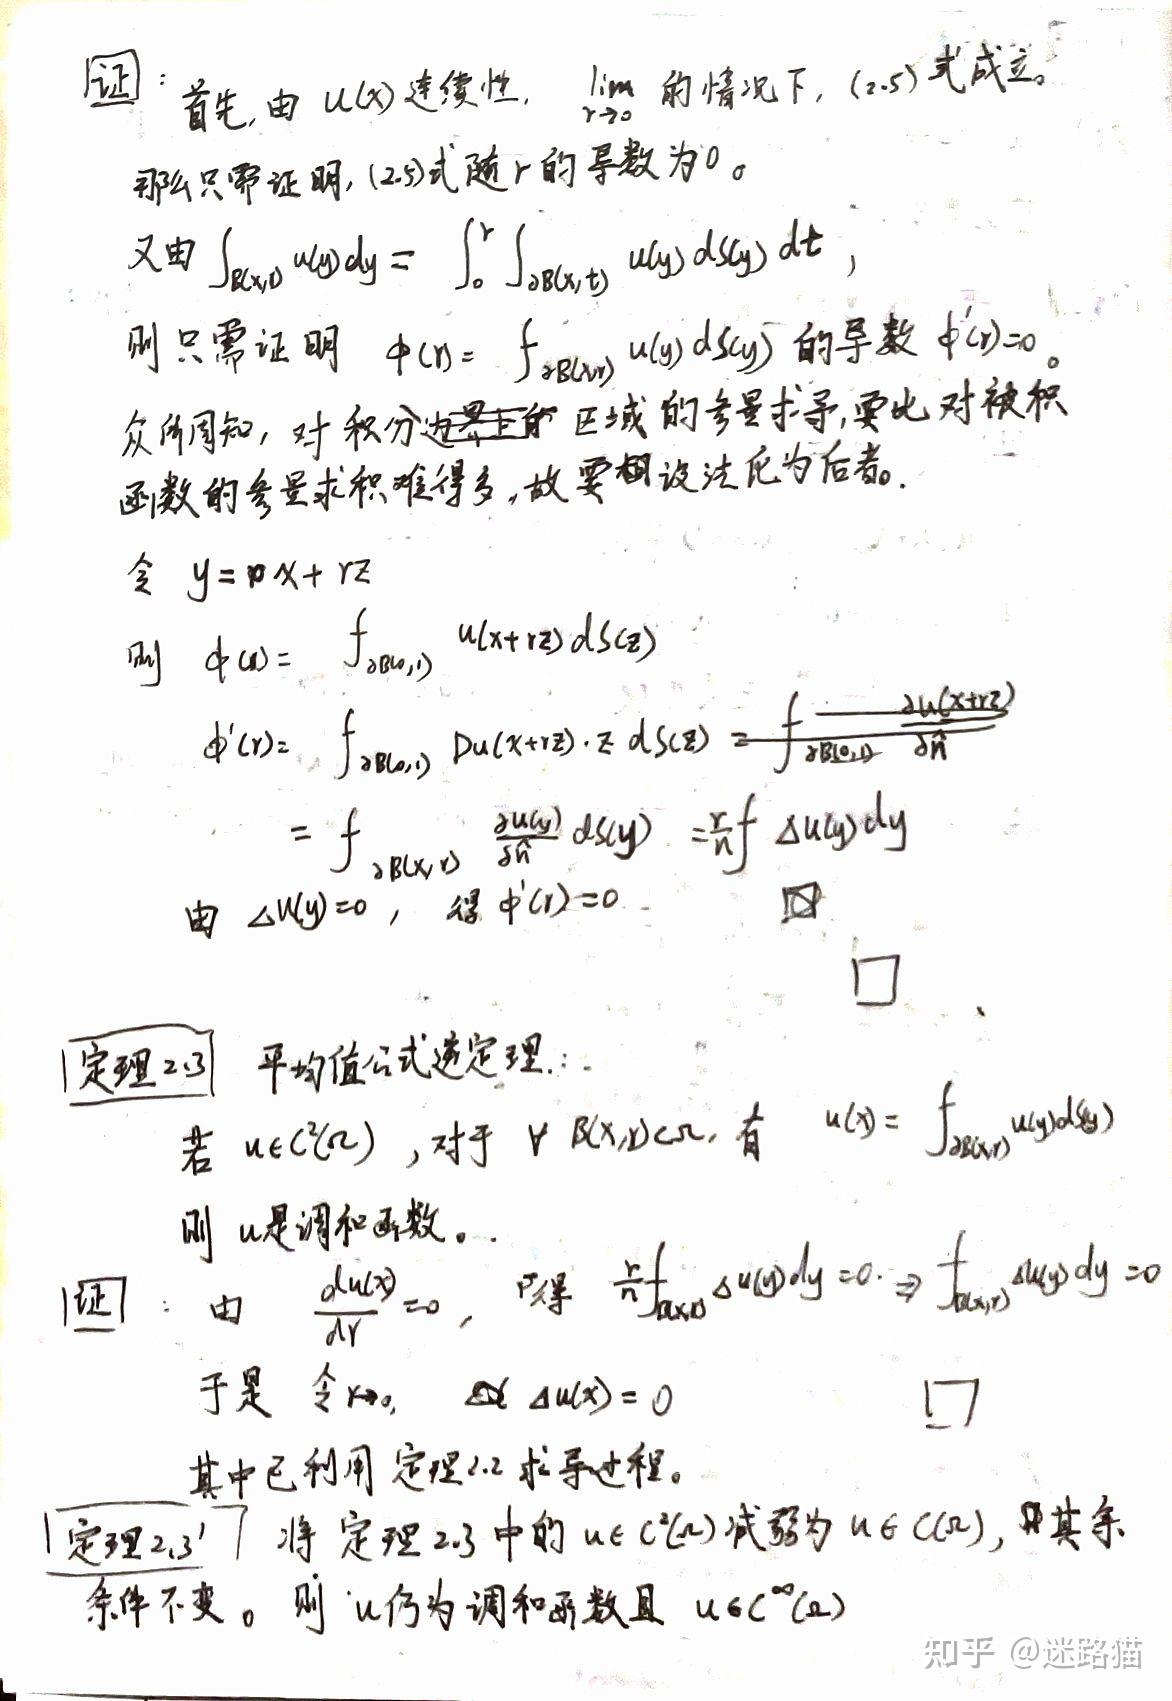 证: 首先,由 u(x) 连续性, lim r→0 的情况下, (2.5) 式成立。
那么只需证明, (2.5)式随 r 的导数为0。
又由 ∫_{B(x,r)} u(y)dy = ∫_0^r ∫_{∂B(x,t)} u(y) dS(y) dt ,
则只需证明 φ(r) = ⨍_{∂B(x,r)} u(y) dS(y) 的导数 φ'(r)=0。
众所周知, 对积分区域的参量求导, 要比对被积
函数的参量求积难得多, 故要设法化为后者。
令 y = x + rz
则 φ(r) = ⨍_{∂B(0,1)} u(x+rz) dS(z)
φ'(r) = ⨍_{∂B(0,1)} Du(x+rz)·z dS(z) = ⨍_{∂B(0,1)} ∂u(x+rz)/∂n̂
= ⨍_{∂B(x,r)} ∂u(y)/∂n̂ dS(y) = r/n ⨍ Δu(y) dy
由 Δu(y)=0 , 得 φ'(r)=0
定理2.3 平均值公式逆定理:
若 u∈C²(Ω) , 对于 ∀ B(x,r)⊂Ω, 有 u(x) = ⨍_{∂B(x,r)} u(y)dS(y)
则 u是调和函数。
证: 由 du(x)/dr =0 , 可得 r/n ⨍_{B(x,r)} Δu(y)dy =0. ⇒ ⨍_{B(x,r)} Δu(y)dy =0
于是 令 r→0, Δu(x) = 0
其中已利用 定理2.2 求导过程。
定理2.3' 将 定理2.3 中的 u∈C²(Ω) 减弱为 u∈C(Ω), 其余
条件不变。则 u仍为调和函数且 u∈C^∞(Ω)
知乎 @迷路猫